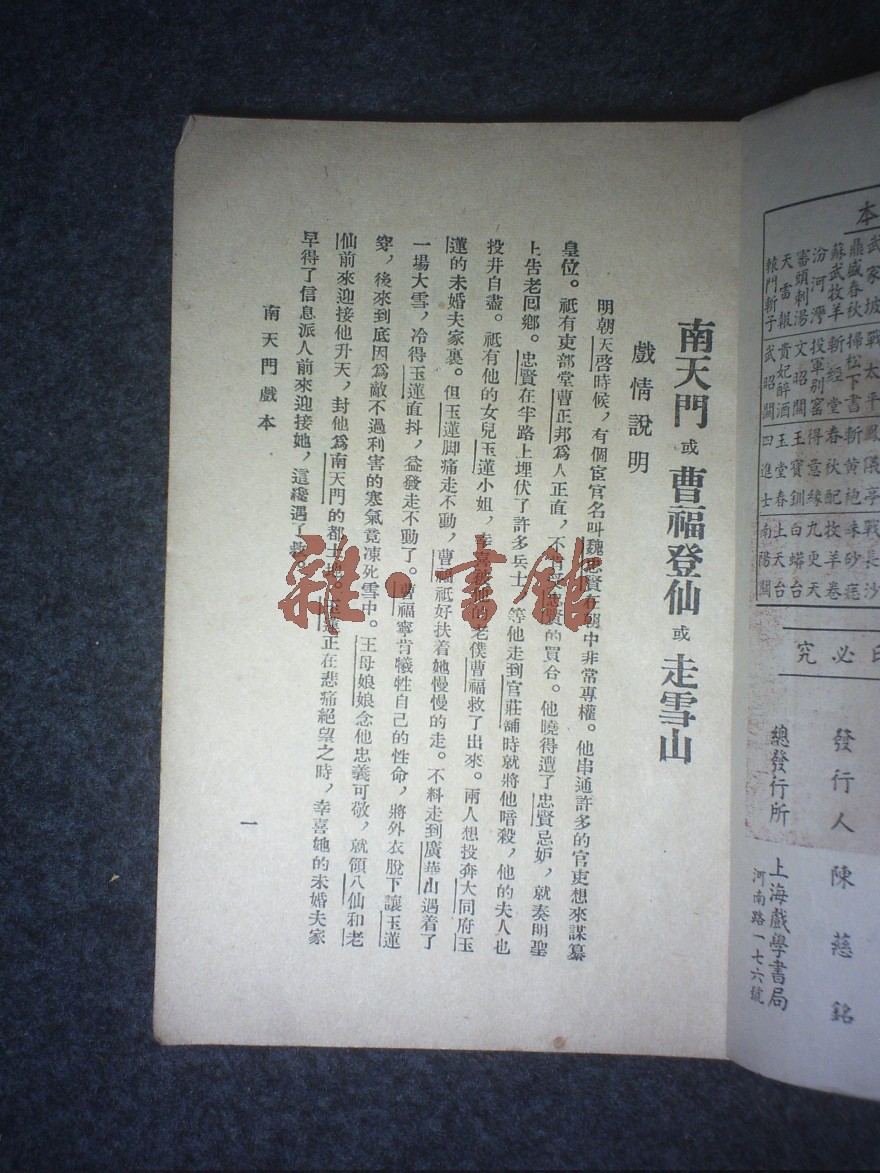 南天門 或 曹福登仙 或 走雪山
戲情說明
明朝天啓時候，有個宦官名叫魏忠賢在朝中非常專權。他串通許多的官吏想來謀纂
皇位。祇有吏部堂曹正邦爲人正直，不肯受忠賢的買合。他曉得遭了忠賢忌妒，就奏明聖
上告老囘鄉。忠賢在半路上埋伏了許多兵士 等他走到官莊舖時就將他暗殺，他的夫人也
投井自盡。祇有他的女兒玉蓮小姐，幸喜被他的老僕曹福救了出來。兩人想投奔大同府玉
蓮的未婚夫家裏。但玉蓮脚痛走不動，曹福祇好扶着她慢慢的走。不料走到廣華山遇着了
一場大雪，冷得玉蓮直抖，益發走不動了。曹福寧肯犧牲自己的性命，將外衣脫下讓玉蓮
穿，後來到底因爲敵不過利害的寒氣竟凍死雪中。王母娘娘念他忠義可敬，就領八仙和老
仙前來迎接他升天，封他爲南天門的都土地。玉蓮正在悲痛絕望之時，幸喜她的未婚夫家
早得了信息派人前來迎接她，這纔遇了救。
南天門戲本
一
本
武家坡 戰太平 鳳儀亭 戰長沙
鼎盛春秋 掃松下書 斬黃袍 硃砂痣
蘇武牧羊 斬經堂 春秋配 牧羊卷
汾河灣 投軍別窰 得意緣 九更天
審頭刺湯 文昭關 王寶釧 白蟒台
天雷報 貴妃醉酒 玉堂春 上天台
轅門斬子 武昭關 四進士 南陽關
印必究
發行人 陳慈銘
總發行所 上海戲學書局
河南路一七六號
雜·書館